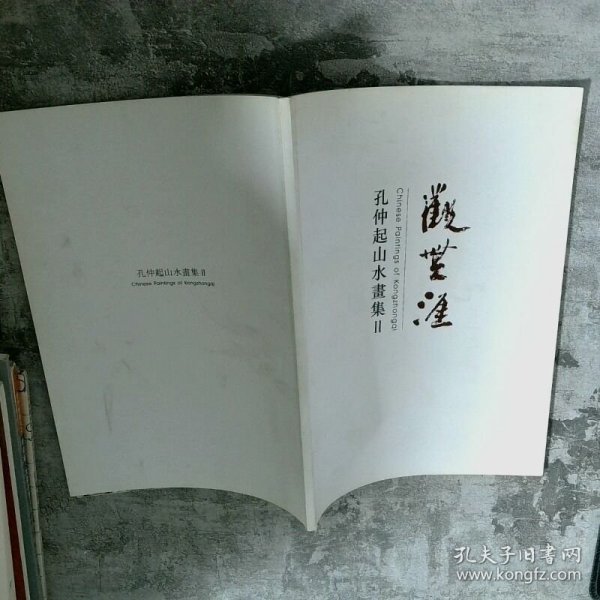 觀無涯
Chinese Paintings of Kongzhongqi
孔仲起山水畫集 II
孔仲起山水畫集 II
Chinese Paintings of Kongzhongqi
孔夫子旧书网
www.kongfz.com